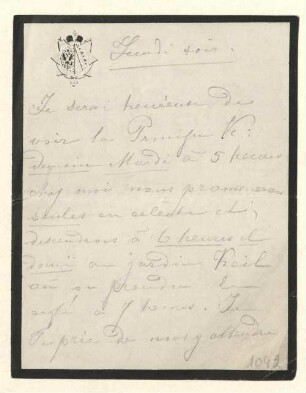 Lundi soir.
Je serai heureuse de
voir la Princesse
demain Mardi à 5 heures
chez moi nous promenerons
seules en calèche et
descendrons à 6 heures et
demie au jardin
où on prendra le
café à 7 heures. Je
prie de nous y attendre
1092